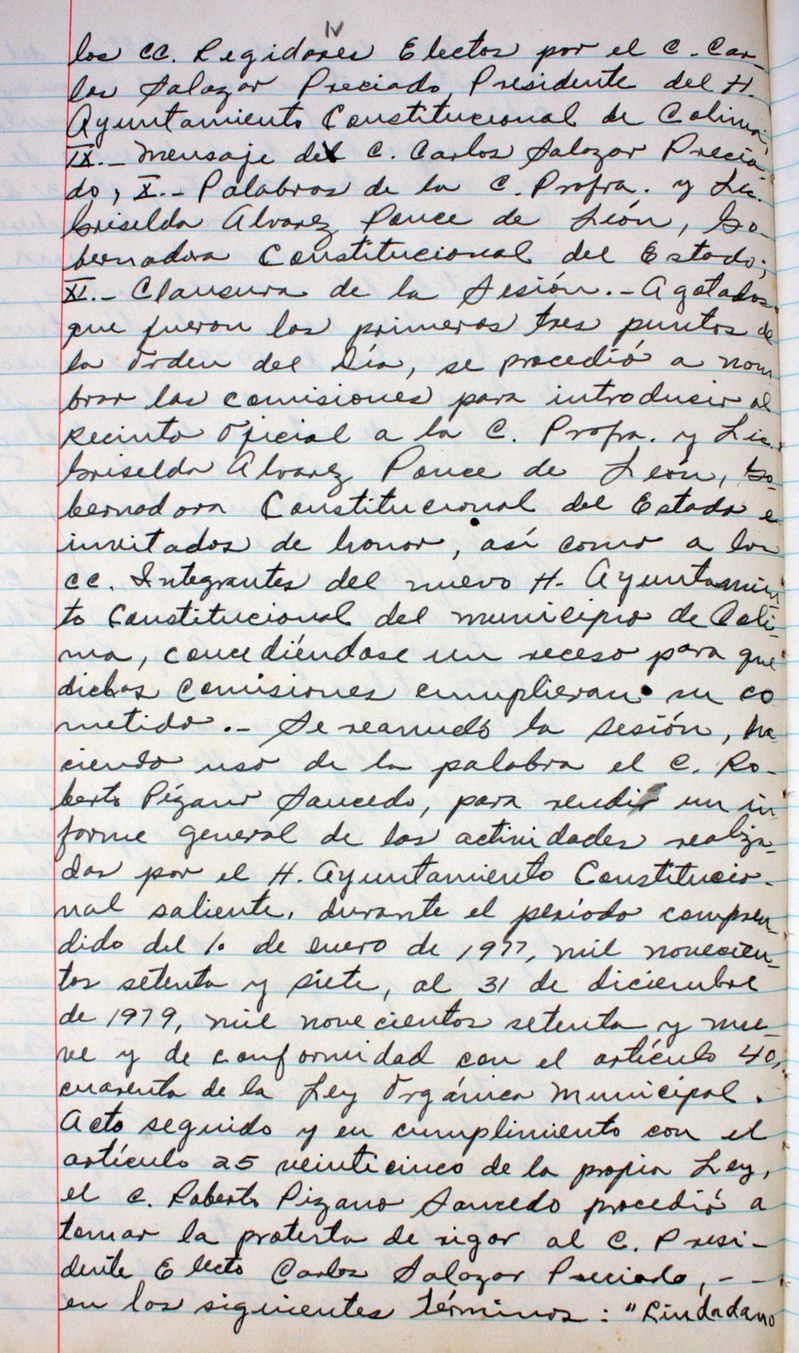 IV
los CC. Regidores Electos por el C. Car-
los Salazar Preciado, Presidente del H.
Ayuntamiento Constitucional de Colima;
IX.- Mensaje del C. Carlos Salazar Precia-
do; X.- Palabras de la C. Profra. y Lic.
Griselda Alvarez Ponce de León, Go-
bernadora Constitucional del Estado;
XI.- Clausura de la Sesión.- Agotados
que fueron los primeros tres puntos de
la Orden del Día, se procedió a nom-
brar las comisiones para introducir al
Recinto Oficial a la C. Profra. y Lic.
Griselda Alvarez Ponce de León, Go-
bernadora Constitucional del Estado e
invitados de honor, así como a los
CC. Integrantes del nuevo H. Ayuntamien-
to Constitucional del municipio de Coli-
ma, concediéndose un receso para que
dichas Comisiones cumplieran su co-
metido.- Se reanudó la Sesión, ha-
ciendo uso de la palabra el C. Ro-
berto Pizano Saucedo, para rendir un in-
forme general de las actividades realiza-
das por el H. Ayuntamiento Constitucio-
nal saliente, durante el período compren-
dido del 1o. de enero de 1977, mil novecien-
tos setenta y siete, al 31 de diciembre
de 1979, mil novecientos setenta y nue-
ve y de conformidad con el artículo 40,
cuarenta de la Ley Orgánica Municipal.
Acto seguido y en cumplimiento con el
artículo 25 veinticinco de la propia Ley,
el C. Roberto Pizano Saucedo procedió a
tomar la protesta de rigor al C. Presi-
dente Electo Carlos Salazar Preciado, - -
en los siguientes términos: "Ciudadano